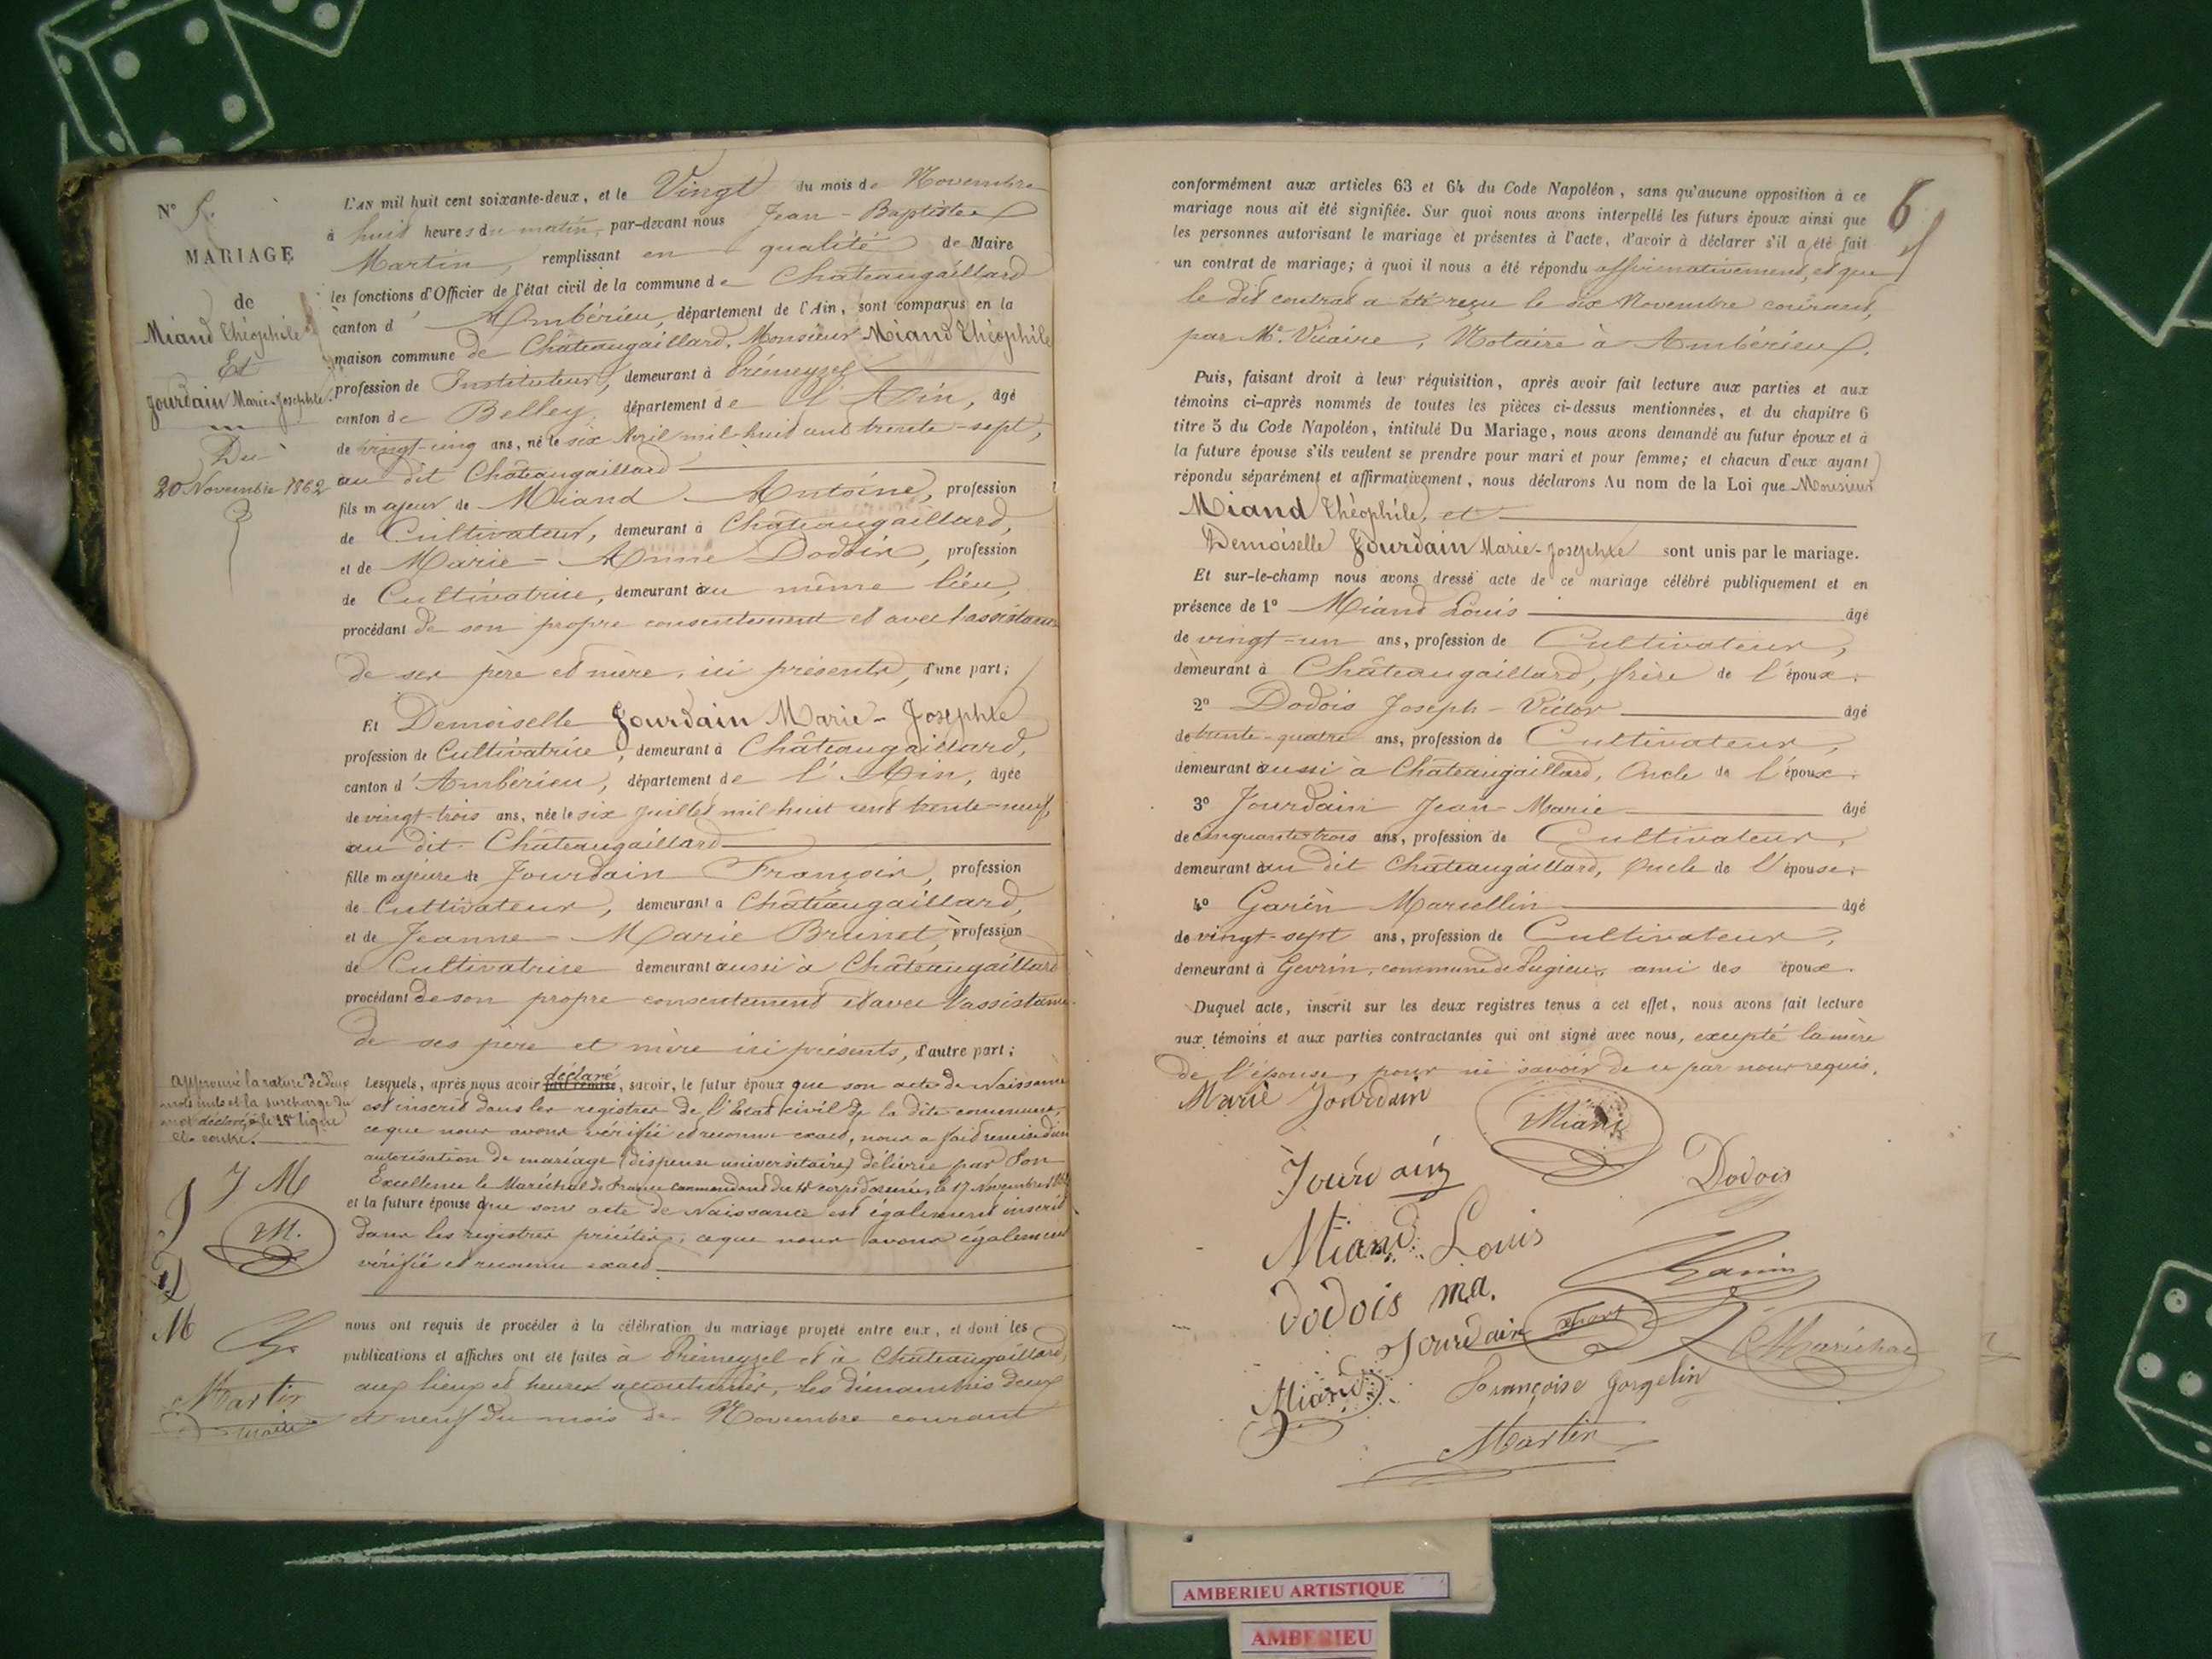 N° 5.
MARIAGE
de
Miand Théophile
Et
Jourdain Marie-Josephte.
Du
20 Novembre 1862
L'AN mil huit cent soixante-deux, et le Vingt du mois de Novembre
à huit heures du matin, par-devant nous Jean-Baptiste
Martin, remplissant en qualité de Maire
les fonctions d'Officier de l'état civil de la commune de Châteaugaillard
canton d'Ambérieu, département de l'Ain, sont comparus en la
maison commune de Châteaugaillard, Monsieur Miand Théophile
profession de Instituteur, demeurant à Prémeyzel
canton de Belley, département de l'Ain, âgé
de vingt-cinq ans, né le six Avril mil huit cent trente-sept,
au dit Châteaugaillard
fils majeur de Miand Antoine, profession
de Cultivateur, demeurant à Châteaugaillard,
et de Marie-Anne Dodois, profession
de Cultivatrice, demeurant au même lieu,
procédant de son propre consentement et avec l'assistance
de ses père et mère, ici présents, d'une part;
Et Demoiselle Jourdain Marie-Josephte
profession de Cultivatrice, demeurant à Châteaugaillard,
canton d'Ambérieu, département de l'Ain, âgée
de vingt-trois ans, née le six Juillet mil huit cent trente-neuf,
au dit Châteaugaillard
fille majeure de Jourdain François, profession
de Cultivateur, demeurant à Châteaugaillard,
et de Jeanne-Marie Brunet, profession
de Cultivatrice demeurant aussi à Châteaugaillard
procédant de son propre consentement et avec l'assistance
de ses père et mère ici présents, d'autre part;
approuvé la rature de deux
mots nuls et la surcharge du
mot déclaré, à la 25e ligne
ci-contre.
J M
M.
J
D
M
Martin
maire
déclaré
Lesquels, après nous avoir fait remise, savoir, le futur époux que son acte de Naissance
est inscrit dans les registres de l'Etat civil de la dite commune,
ce que nous avons vérifié et reconnu exact, nous a fait remise d'une
autorisation de mariage (dispense universitaire) délivrée par Son
Excellence le Maréchal de France commandant du 4e corps d'armée, le 17 Novembre 1862
et la future épouse que son acte de Naissance est également inscrit
dans les registres précités, ce que nous avons également
vérifié et reconnu exact
nous ont requis de procéder à la célébration du mariage projeté entre eux, et dont les
publications et affiches ont été faites à Prémeyzel et à Châteaugaillard,
aux lieux et heures accoutumés, les dimanches deux
et neuf du mois de Novembre courant
6
conformément aux articles 63 et 64 du Code Napoléon, sans qu'aucune opposition à ce
mariage nous ait été signifiée. Sur quoi nous avons interpellé les futurs époux ainsi que
les personnes autorisant le mariage et présentes à l'acte, d'avoir à déclarer s'il a été fait
un contrat de mariage; à quoi il nous a été répondu affirmativement, et que
le dit contrat a été reçu le six Novembre courant,
par Me. Vicaire, Notaire à Ambérieu.
Puis, faisant droit à leur réquisition, après avoir fait lecture aux parties et aux
témoins ci-après nommés de toutes les pièces ci-dessus mentionnées, et du chapitre 6
titre 5 du Code Napoléon, intitulé Du Mariage, nous avons demandé au futur époux et à
la future épouse s'ils veulent se prendre pour mari et pour femme; et chacun d'eux ayant
répondu séparément et affirmativement, nous déclarons Au nom de la Loi que Monsieur
Miand Théophile, et
Demoiselle Jourdain Marie-Josephte sont unis par le mariage.
Et sur-le-champ nous avons dressé acte de ce mariage célébré publiquement et en
présence de 1° Miand Louis âgé
de vingt-un ans, profession de Cultivateur,
demeurant à Châteaugaillard, frère de l'époux.
2° Dodois Joseph-Victor âgé
de trente-quatre ans, profession de Cultivateur,
demeurant aussi à Châteaugaillard, Oncle de l'époux.
3° Jourdain Jean-Marie âgé
de cinquante-trois ans, profession de Cultivateur,
demeurant au dit Châteaugaillard, Oncle de l'épouse.
4° Garin Marcellin âgé
de vingt-sept ans, profession de Cultivateur,
demeurant à Gevrin, commune de Pugieu, ami des époux.
Duquel acte, inscrit sur les deux registres tenus à cet effet, nous avons fait lecture
aux témoins et aux parties contractantes qui ont signé avec nous, excepté la mère
de l'épouse, pour ne savoir de ce par nous requis.
Marie Jourdain
Miand
Jourdain
Dodois
Miand Louis
Garin
dodois ma.
Jourdain
Maréchal
Miand
Françoise Gorgelin
Martin
AMBERIEU ARTISTIQUE
AMBERIEU